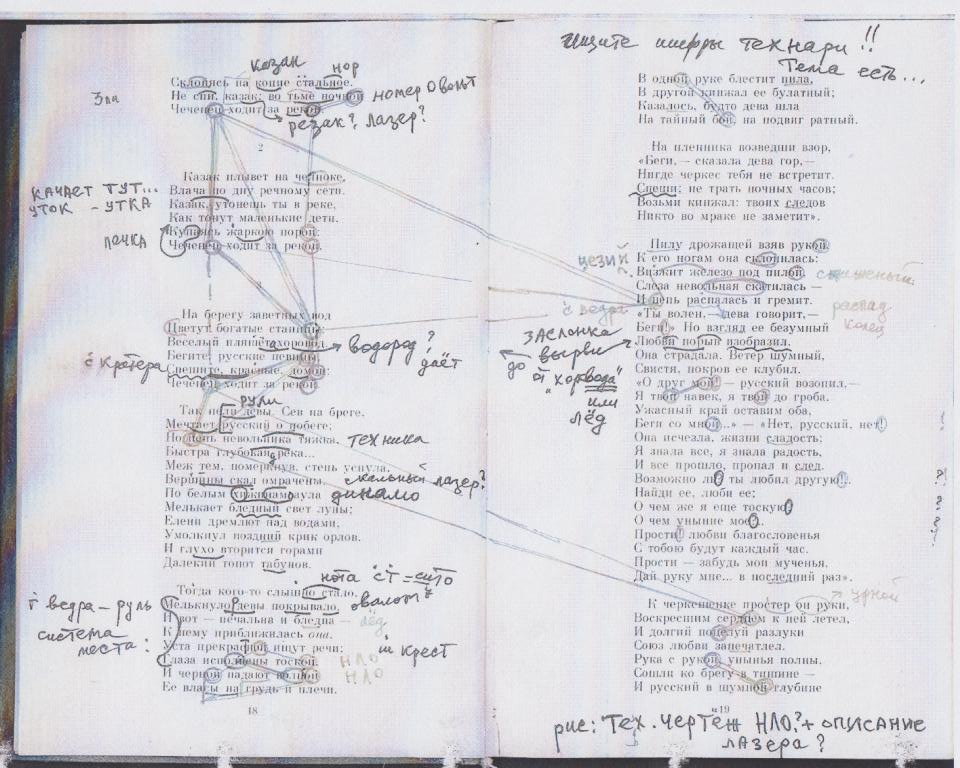 Ищите шифры технари!!
Тема есть...
казак
нор
Склонясь на копие стальное.
Не спи, казак: во тьме ночной
Чеченец ходит за рекой.
номер 0 вольт
резак? лазер?
2
Казак плывет на челноке,
Влача по дну речному сети.
Казак, утонешь ты в реке,
Как тонут маленькие дети,
Купаясь жаркою порой:
Чеченец ходит за рекой.
качает тут...
уток - утка
печка
3
На берегу заветных вод
Цветут богатые станицы;
Веселый пляшет хоровод.
Бегите, русские певицы,
Спешите, красные, домой:
Чеченец ходит за рекой.
водород?
даёт
с кратера
рули
Так пели девы. Сев на бреге,
Мечтает русский о побеге;
Но цепь невольника тяжка,
Быстра глубокая река...
Меж тем, померкнув, степь уснула,
Вершины скал омрачены.
По белым хижинам аула
Мелькает бледный свет луны;
Елени дремлют над водами,
Умолкнул поздний крик орлов,
И глухо вторится горами
Далекий топот табунов.
техника
скальный лазер?
динамо
Тогда кого-то слышно стало,
Мелькнуло девы покрывало,
И вот — печальна и бледна —
К нему приближилась она.
Уста прекрасной ищут речи;
Глаза исполнены тоской,
И черной падают волной
Ее власы на грудь и плечи.
нота
овалом?
лёд
крест
НЛО
НЛО
ведра - руль
система
места:
18
В одной руке блестит пила,
В другой кинжал ее булатный;
Казалось, будто дева шла
На тайный бой, на подвиг ратный.
На пленника возведши взор,
«Беги, — сказала дева гор,—
Нигде черкес тебя не встретит.
Спеши; не трать ночных часов;
Возьми кинжал: твоих следов
Никто во мраке не заметит».
Пилу дрожащей взяв рукой,
К его ногам она склонилась:
Визжит железо под пилой,
Слеза невольная скатилась —
И цепь распалась и гремит.
«Ты волен,— дева говорит,—
Беги!» Но взгляд ее безумный
Любви порыв изобразил.
Она страдала. Ветер шумный,
Свистя, покров ее клубил.
«О друг мой! — русский возопил,—
Я твой навек, я твой до гроба.
Ужасный край оставим оба,
Беги со мной...» — «Нет, русский, нет!
Она исчезла, жизни сладость;
Я знала все, я знала радость,
И все прошло, пропал и след.
Возможно ль? ты любил другую!..
Найди ее, люби ее;
О чем же я еще тоскую?
О чем уныние мое?..
Прости! любви благословенья
С тобою будут каждый час.
Прости — забудь мои мученья,
Дай руку мне... в последний раз».
цезий
с ведра
заслонка
вырви
до
"хоровода"
или
лёд
распад
колец
К черкешенке простер он руки,
Воскресшим сердцем к ней летел,
И долгий поцелуй разлуки
Союз любви запечатлел.
Рука с рукой, унынья полны,
Сошли ко брегу в тишине —
И русский в шумной глубине
19
рис: Тех. чертеж НЛО? + описание
лазера?